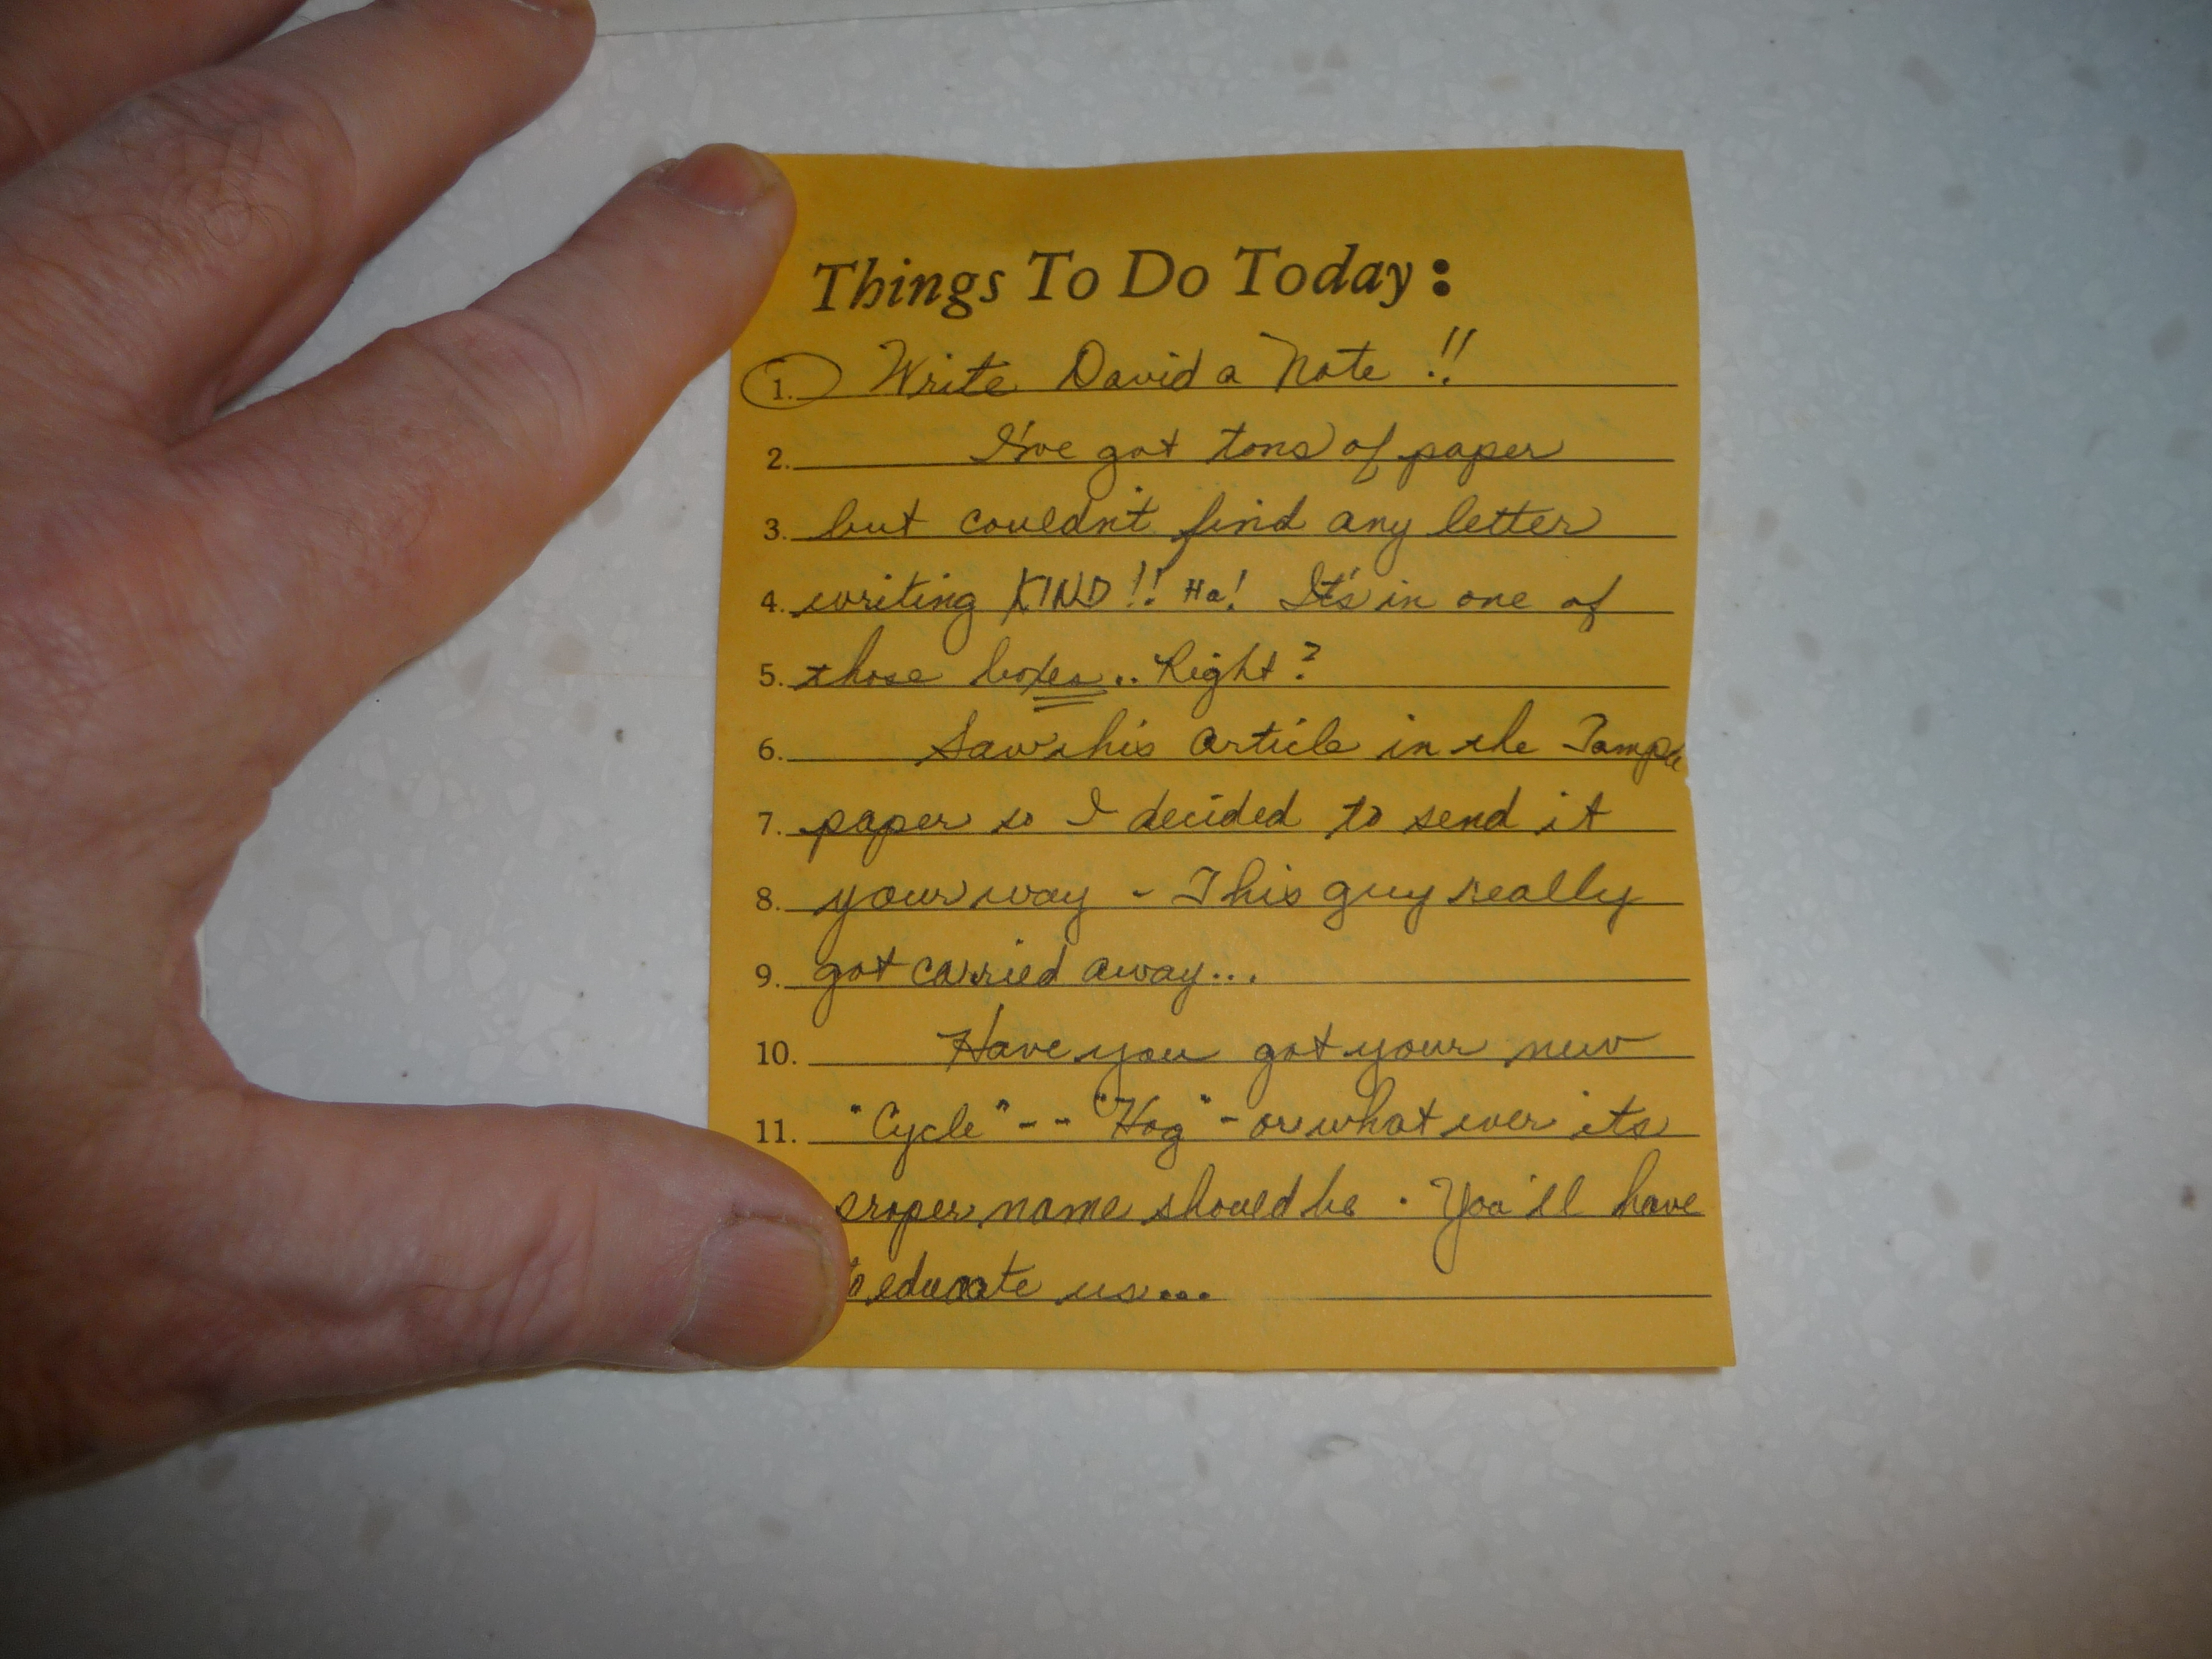 Things To Do Today:
1. Write David a Note !!
2. I've got tons of paper
3. but couldn't find any letter
4. writing KIND!! Ha! It's in one of
5. those boxes.. Right?
6. Saw this article in the Tampa
7. paper so I decided to send it
8. your way - This guy really
9. got carried away...
10. Have you got your new
11. "Cycle" -- "Hog" - or what ever its
proper name should be. You'll have
to educate us...